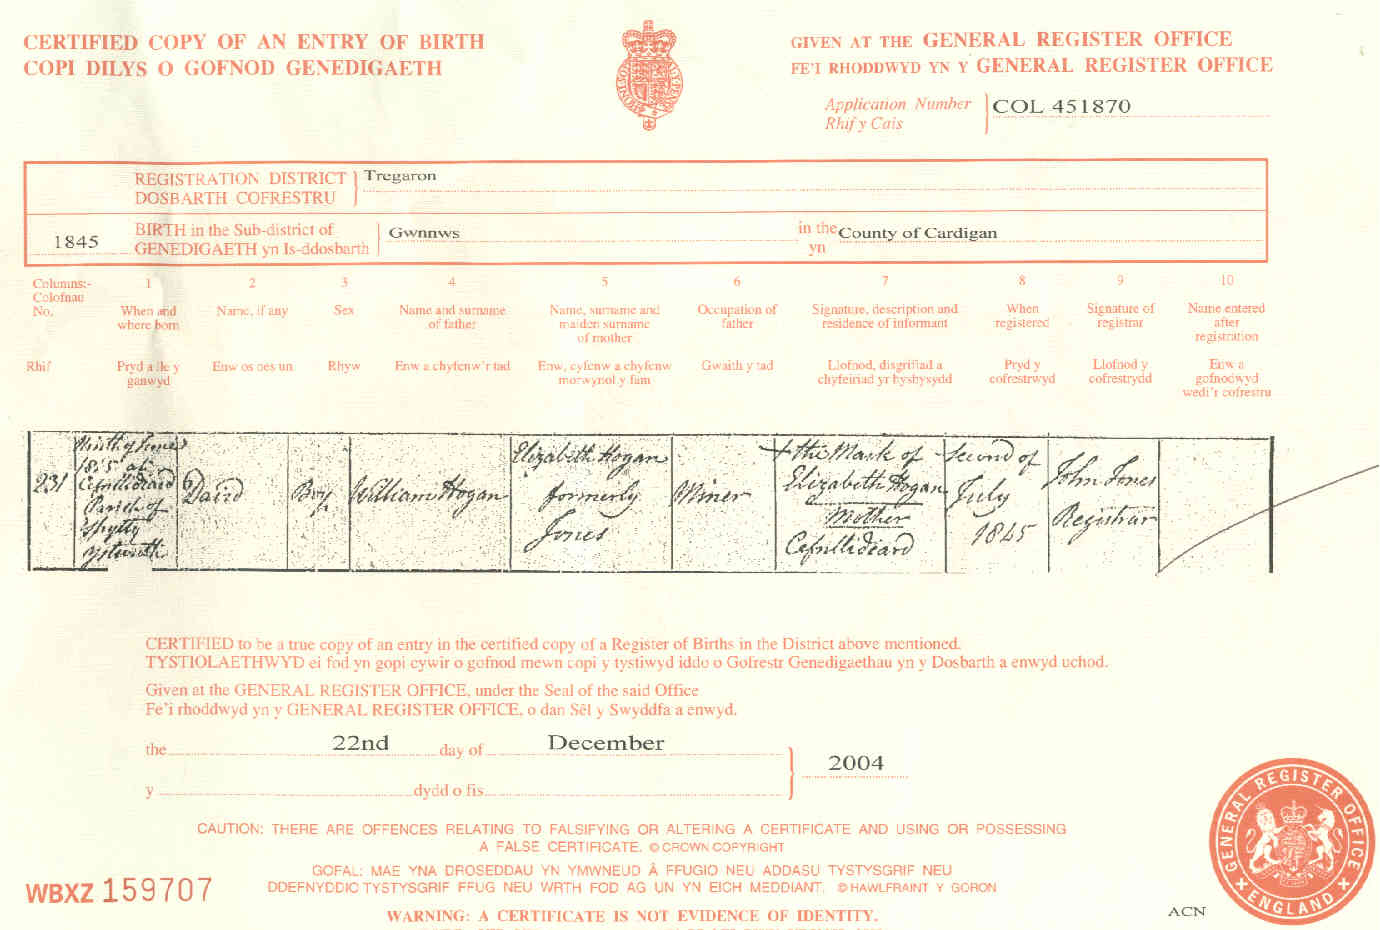 CERTIFIED COPY OF AN ENTRY OF BIRTH
COPI DILYS O GOFNOD GENEDIGAETH
GIVEN AT THE GENERAL REGISTER OFFICE
FE'I RHODDWYD YN Y GENERAL REGISTER OFFICE
Application Number
Rhif y Cais
COL 451870
REGISTRATION DISTRICT
DOSBARTH COFRESTRU
Tregaron
1845
BIRTH in the Sub-district of
GENEDIGAETH yn Is-ddosbarth
Gwnnws
in the
yn
County of Cardigan
Columns:- 1 2 3 4 5 6 7 8 9 10
Colofnau
No.
When and
where born
Name, if any
Sex
Name and surname
of father
Name, surname and
maiden surname
of mother
Occupation of
father
Signature, description and
residence of informant
When
registered
Signature of
registrar
Name entered
after
registration
Rhif
Pryd a lle y
ganwyd
Enw os oes un
Rhyw
Enw a chyfenw'r tad
Enw, cyfenw a chyfenw
morwynol y fam
Gwaith y tad
Llofnod, disgrifiad a
chyfeiriad yr hysbysydd
Pryd y
cofrestrwyd
Llofnod y
cofrestrydd
Enw a
gofnodwyd
wedi'r cofrestru
231
Ninth of June
1845 at
Cefnllidiard
Parish of
Spytty
ystwith
David
Boy
William Hogan
Elizabeth Hogan
formerly
Jones
Miner
+ the Mark of
Elizabeth Hogan
Mother
Cefnllidiard
Second of
July
1845
John Jones
Registrar
CERTIFIED to be a true copy of an entry in the certified copy of a Register of Births in the District above mentioned.
TYSTIOLAETHWYD ei fod yn gopi cywir o gofnod mewn copi y tystiwyd iddo o Gofrestr Genedigaethau yn y Dosbarth a enwyd uchod.
Given at the GENERAL REGISTER OFFICE, under the Seal of the said Office
Fe'i rhoddwyd yn y GENERAL REGISTER OFFICE, o dan Sêl y Swyddfa a enwyd.
the 22nd day of December
2004
y dydd o fis
CAUTION: THERE ARE OFFENCES RELATING TO FALSIFYING OR ALTERING A CERTIFICATE AND USING OR POSSESSING
A FALSE CERTIFICATE. © CROWN COPYRIGHT
GOFAL: MAE YNA DROSEDDAU YN YMWNEUD Â FFUGIO NEU ADDASU TYSTYSGRIF NEU
DDEFNYDDIO TYSTYSGRIF FFUG NEU WRTH FOD AG UN YN EICH MEDDIANT. © HAWLFRAINT Y GORON
WBXZ 159707
WARNING: A CERTIFICATE IS NOT EVIDENCE OF IDENTITY.
ACN
GENERAL REGISTER OFFICE
ENGLAND